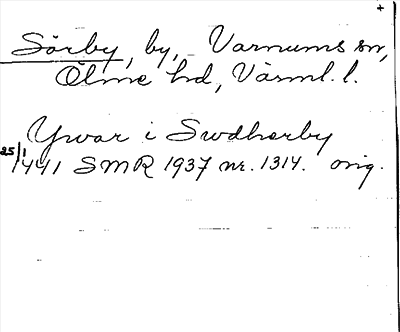 +
Sörby, by, Varnums sn,
Ölme hd, Värml. l.
Ywar i Swdherby
25/1
1441 SMR 1937 nr. 1314. orig.